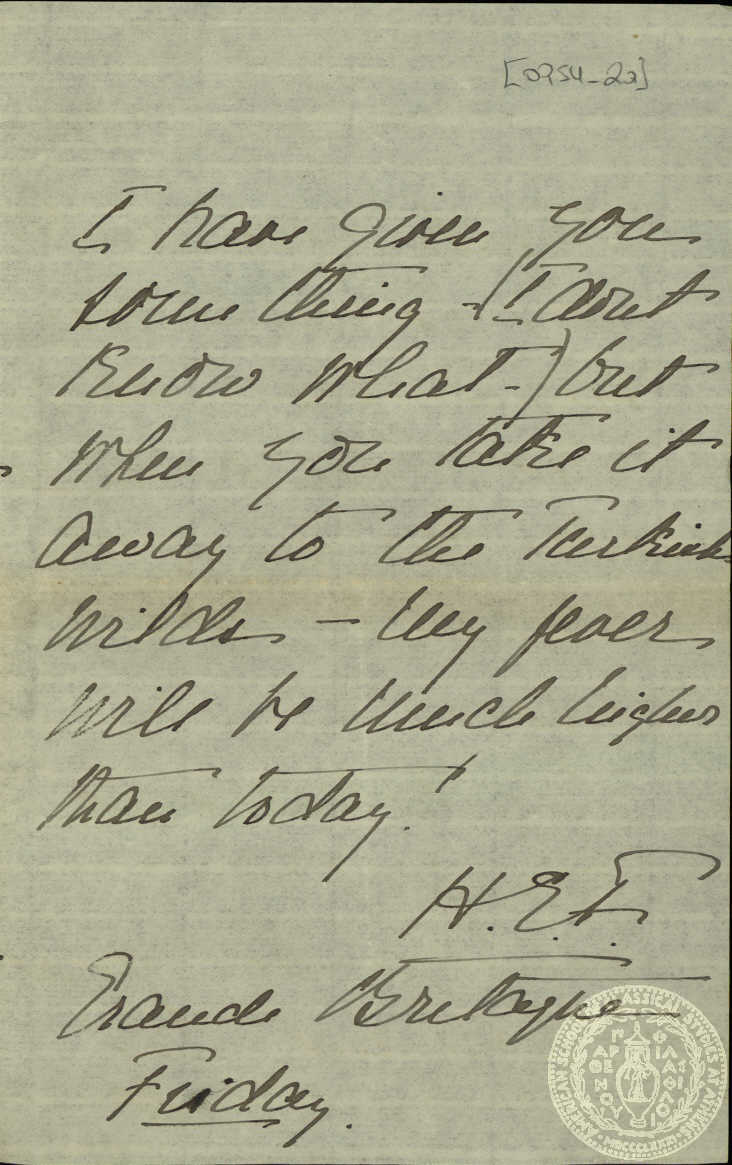 [0954-2a]
I have given you
something - (I dont
know what -) but
when you take it
away to the Turkish
wilds - my fever
will be much higher
than today!
H.E.F.
Grande Bretagne
Friday.
AMERICAN SCHOOL OF CLASSICAL STUDIES AT ATHENS
ΠΑΡΘΕΝΟΥ ΦΙΛΑΣ ΦΙΛΟΙ
MDCCCLXXXI